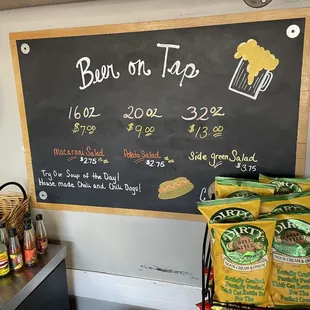 Beer on Tap
16 oz 20 oz 32 oz
$7.00 $9.00 $13.00
Macaroni Salad Potato Salad Side green Salad
$2.75 $2.75 $3.75
Try our Soup of the Day!
House made Chili and Chili Dogs!
DIRTY
DIRTY
DIRTY
DIRTY
SOUR CREAM & ONION